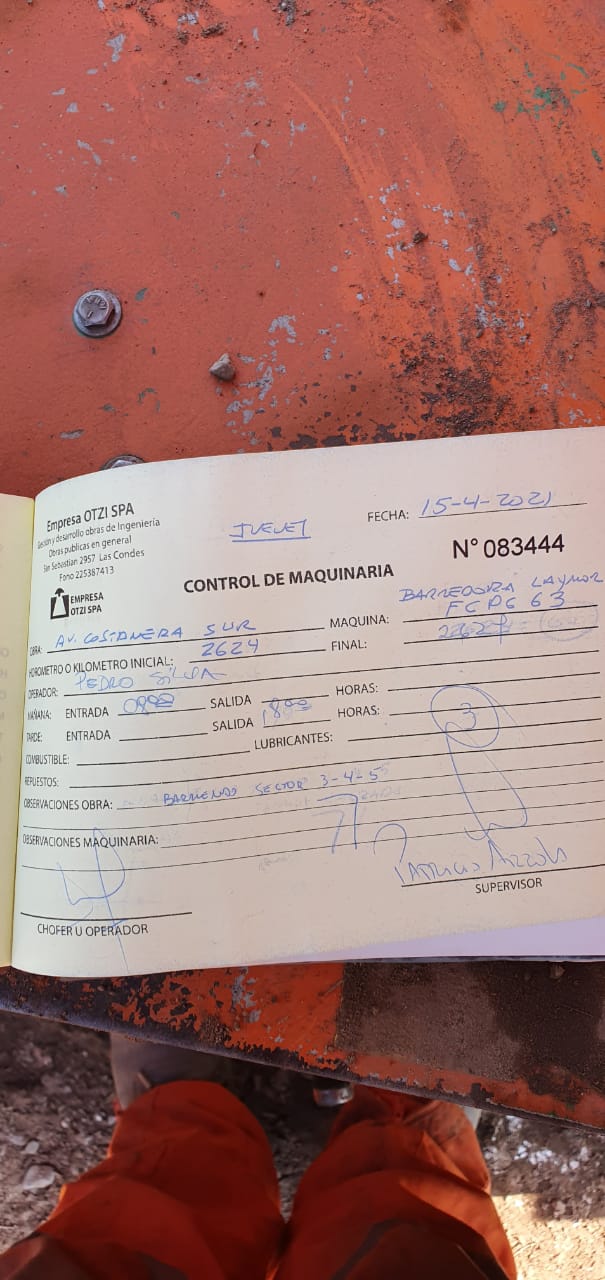 Empresa OTZI SPA
Gestion y desarrollo obras de Ingeniería
Obras publicas en general
San Sebastian 2957 Las Condes
Fono 225387413
EMPRESA
OTZI SPA
JUEVES
FECHA: 15-4-2021
N° 083444
CONTROL DE MAQUINARIA
BARREDORA LAYMOR
OBRA: AV. COSTANERA SUR MAQUINA: FCPG 63
HOROMETRO O KILOMETRO INICIAL: 2624 FINAL:
OPERADOR: PEDRO SILVA
MAÑANA: ENTRADA 0800 SALIDA HORAS:
TARDE: ENTRADA SALIDA 1800 HORAS: 3
COMBUSTIBLE: LUBRICANTES:
REPUESTOS:
OBSERVACIONES OBRA: BARRIENDO SECTOR 3-4-5
OBSERVACIONES MAQUINARIA:
CHOFER U OPERADOR
SUPERVISOR